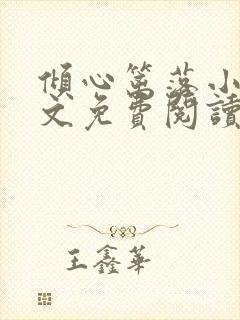 傾心篱落小
文免費閱讀
王鑫華